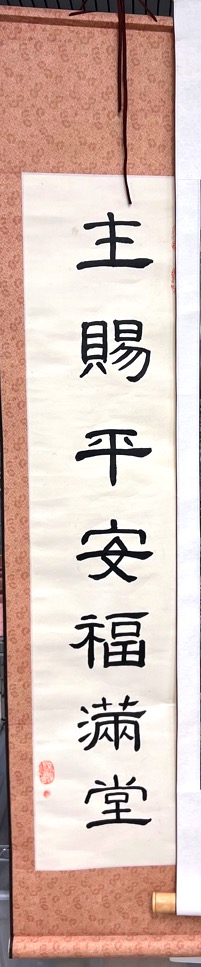 主賜平安福滿堂